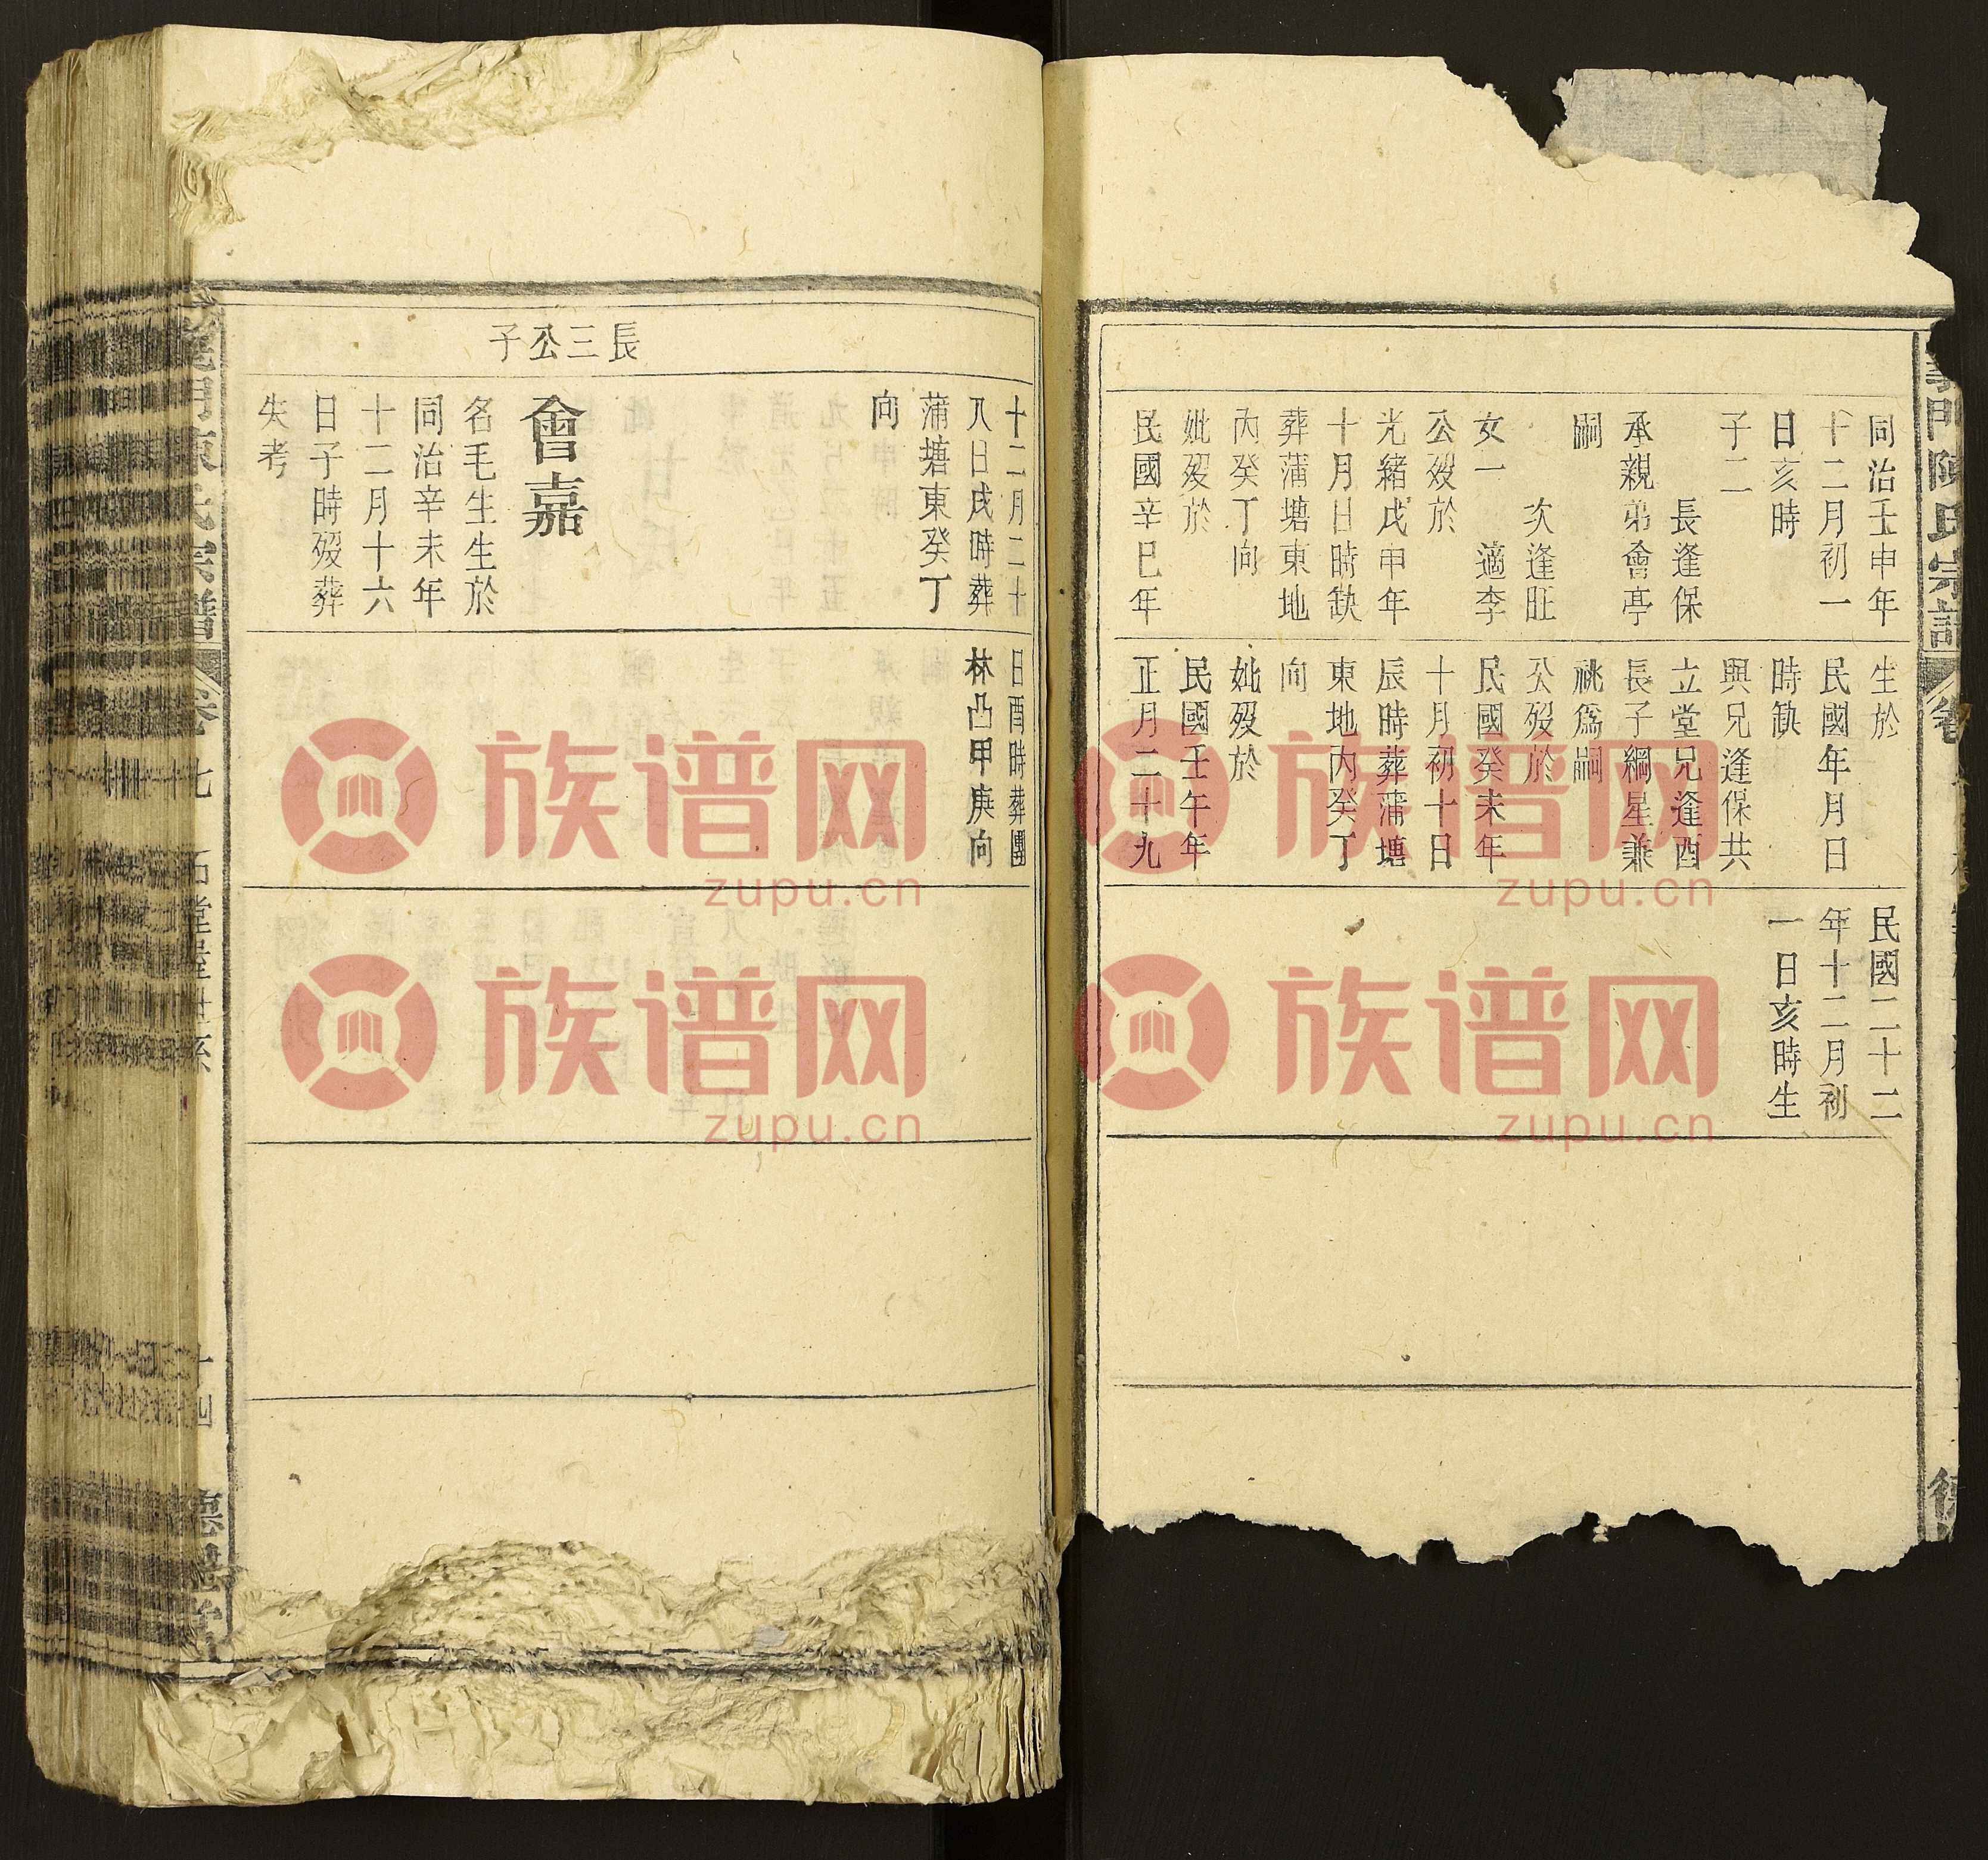 義門陳氏宗譜
同治壬申年
十二月初一
日亥時
子二
長逢保
承親弟會亭
嗣
次逢旺
女一 適李
公歿於
光緒戊申年
十月日時缺
葬蒲塘東地
丙癸丁向
妣歿於
民國辛巳年
生於
民國年月日
時缺
與兄逢保共
立堂兄逢酉
長子綱星兼
祧爲嗣
公歿於
民國癸未年
十月初十日
辰時葬蒲塘
東地丙癸丁
向
妣歿於
民國壬午年
正月二十九
民國二十二
年十二月初
一日亥時生
長三公子
十二月二十
八日戌時葬
蒲塘東癸丁
向
會嘉
名毛生生於
同治辛未年
十二月十六
日子時歿葬
失考
日酉時葬團
林凸甲庚向
卷 七
十四
族谱网
zupu.cn
族谱网
zupu.cn
族谱网
zupu.cn
族谱网
zupu.cn